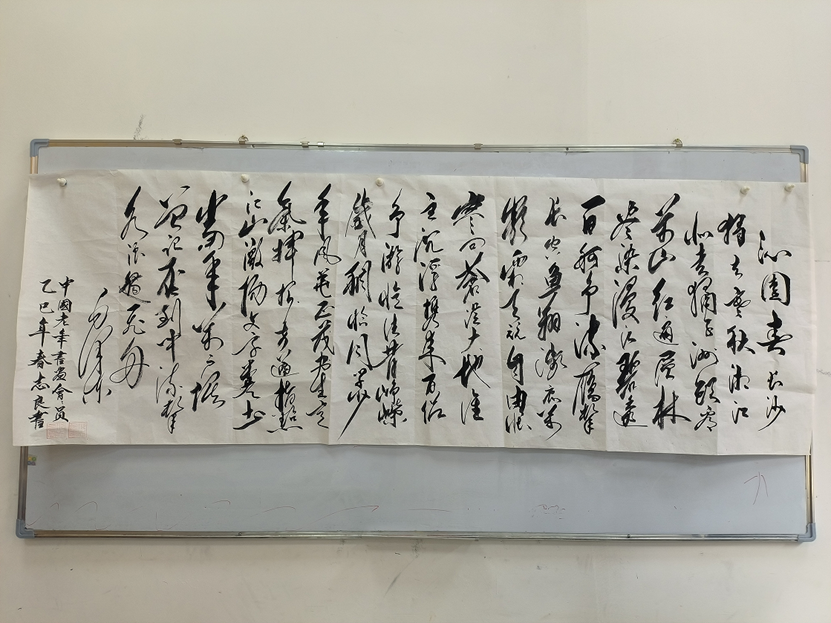 沁園春 长沙
独立寒秋湘江
北去橘子洲頭看
万山红遍層林
尽染漫江碧透
百舸争流鹰擊
长空鱼翔浅底万
類霜天競自由悵
寥廓蒼茫大地谁
主沉浮携来百侣
曾游忆往昔峥嵘
歲月稠恰同学少
年风華正茂书生意
氣揮斥方遒指點
江山激揚文字粪土
當年万户侯
曾记否到中流擊
水浪遏飞舟
毛泽东
中國老年書畫會员
乙巳年春志良書